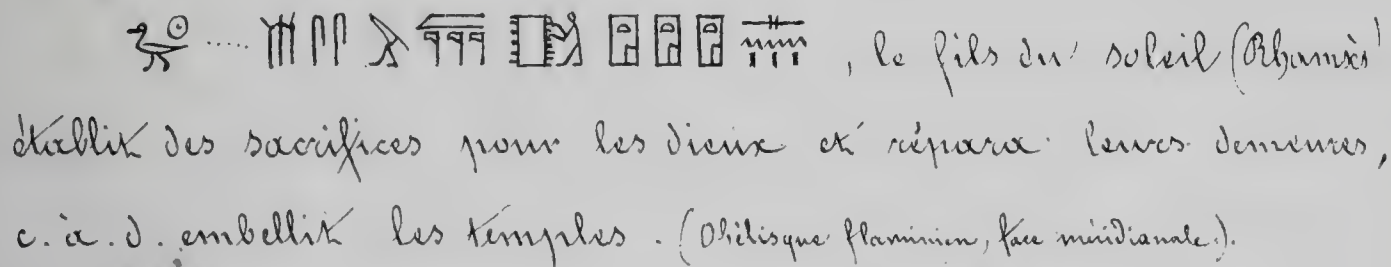 ..... , le fils du soleil (Rhamsès)
établit des sacrifices pour les dieux et répara leurs demeures,
c. à. d. embellit les temples. (Obélisque flaminien, face méridianale.).